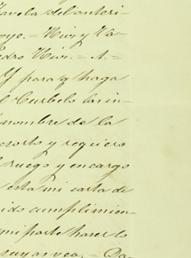 Favila del anteri-
oyo. = Hiv. y Va-
edro Hiv. = A. =
Y para q. haga
l Curbelo las in-
nombre de la
xorto y requiero
ruego y encargo
esta mi carta de
ido cumplimien-
mi parte hacer lo
suyas vea. = Da-